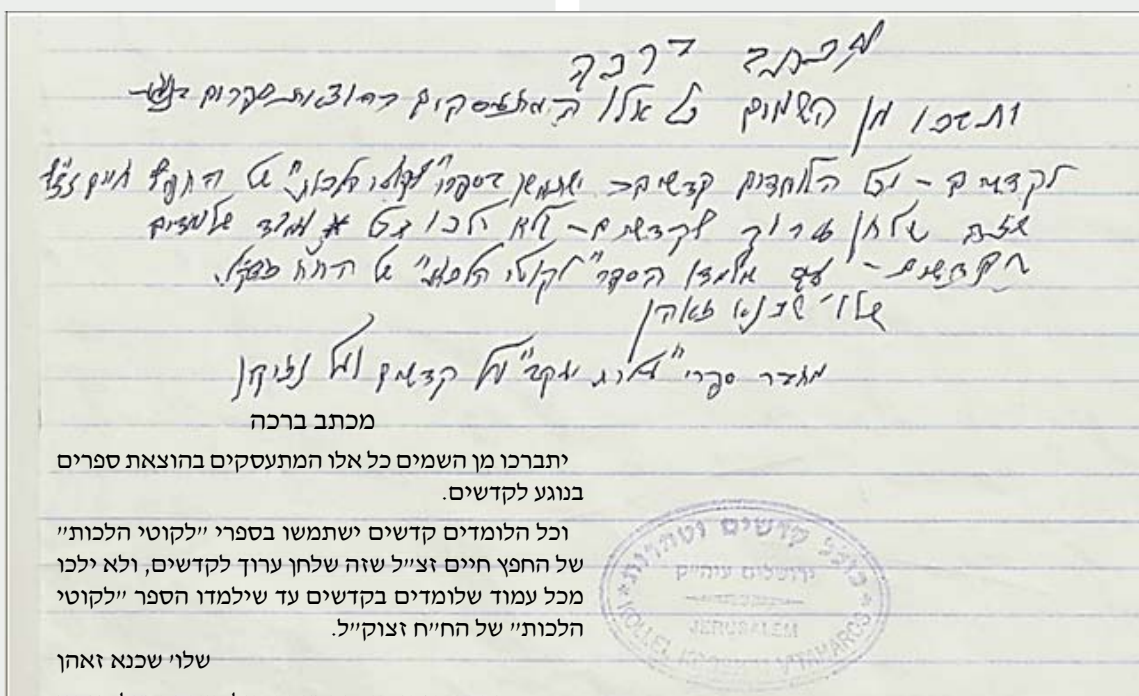 מכתב ברכה
יתברכו מן השמים כל אלו המתעסקים בהוצאת ספרים בנוגע
לקדשים - וכל הלומדים קדשים ישתמשו בספרי "לקוטי הלכות" של החפץ חיים זצ"ל
שזה שלחן ערוך לקדשים - ולא ילכו מכל עמוד שלומדים
בקדשים - עד שילמדו הספר "לקוטי הלכות" של הח"ח זצוק"ל.
שלו' שכנא זאהן
מחבר ספרי "נחלת יעקב" על קדשים ועל נזיקין
מכתב ברכה
יתברכו מן השמים כל אלו המתעסקים בהוצאת ספרים
בנוגע לקדשים.
וכל הלומדים קדשים ישתמשו בספרי ״לקוטי הלכות״
של החפץ חיים זצ״ל שזה שלחן ערוך לקדשים, ולא ילכו
מכל עמוד שלומדים בקדשים עד שילמדו הספר ״לקוטי
הלכות״ של הח״ח זצוק״ל.
שלו׳ שכנא זאהן
כולל קדשים וטהרות
ירושלים עיה״ק
JERUSALEM
KOLLEL KDOSHIM VTAHAROS